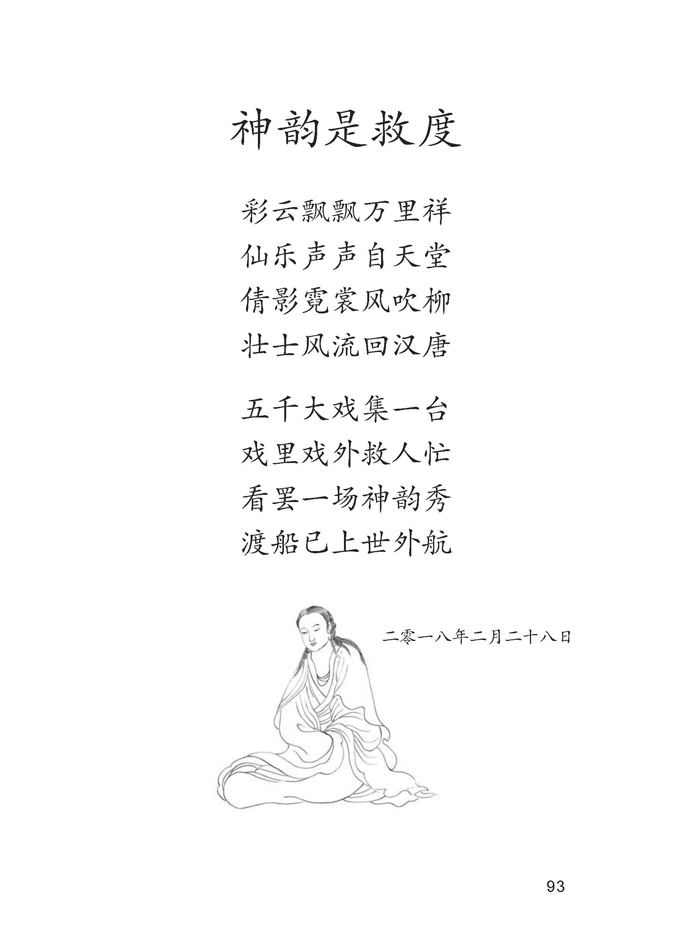 神韵是救度
彩云飘飘万里祥
仙乐声声自天堂
倩影霓裳风吹柳
壮士风流回汉唐
五千大戏集一台
戏里戏外救人忙
看罢一场神韵秀
渡船已上世外航
二零一八年二月二十八日
93